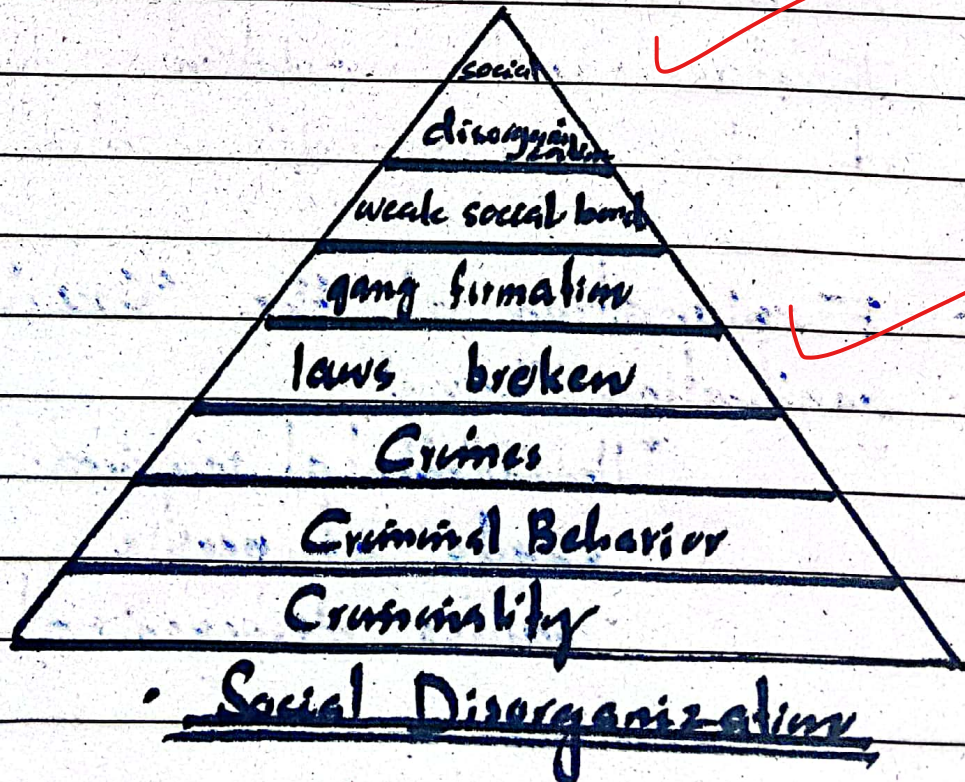 social
disorganization
weak social bond
gang formation
laws broken
Crimes
Criminal Behavior
Criminality
Social Disorganization